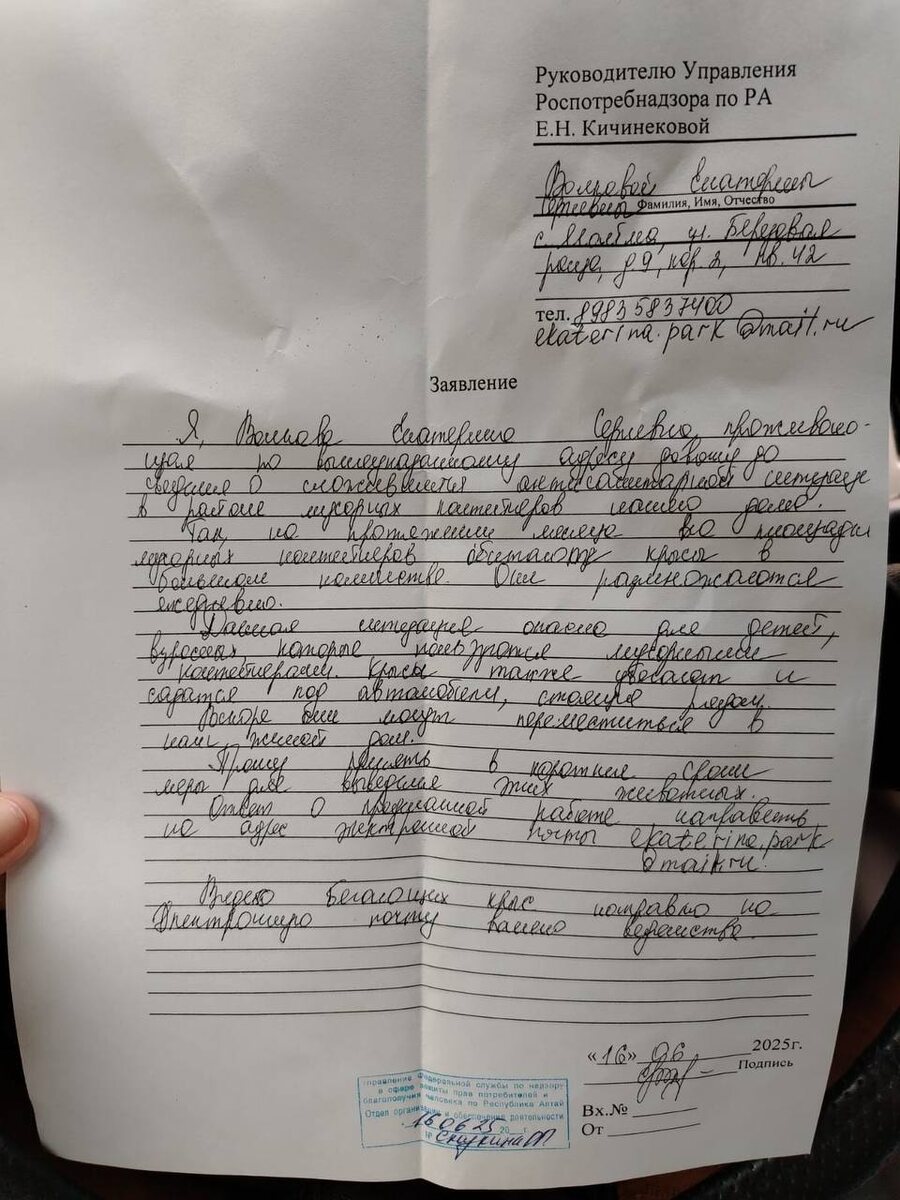 Руководителю Управления
Роспотребнадзора по РА
Е.Н. Кичинековой
Волковой Екатерины
Сергеевны Фамилия, Имя, Отчество
с. Майма, ул. Березовая
роща, д. 9, кор. 2, кв. 42
тел. 89835837400
ekaterina.park@mail.ru
Заявление
Я, Волкова Екатерина Сергеевна, проживаю-
щая по вышеуказанному адресу довожу до
сведения о сложившейся антисанитарной ситуации
в районе мусорных контейнеров нашего дома.
Так, на протяжении месяца на площадке
мусорных контейнеров обитают крысы в
большом количестве. Они размножаются
ежедневно.
Данная ситуация опасна для детей,
взрослых, которые пользуются мусорными
контейнерами. Крысы также убегают и
садятся под автомобили, стоящие рядом.
Вскоре они могут переместиться в
наш жилой дом.
Прошу принять в короткие сроки
меры для выведения этих животных.
Ответ о проделанной работе направить
на адрес электронной почты ekaterina.park
@mail.ru.
Видео бегающих крыс направлю на
электронную почту вашего ведомства.
«16» 06 2025г.
Подпись
Вх.№
От
Управление Федеральной службы по надзору
в сфере защиты прав потребителей и
благополучия человека по Республике Алтай
Отдел организации и обеспечения деятельности
16.06.25 20 г.
№